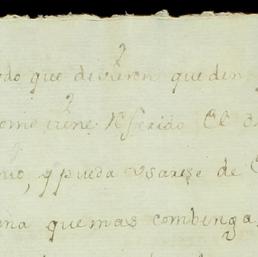 odo que devieron queden
como viene Referido El
nio, y pueda usarese de
ena que mas combenga